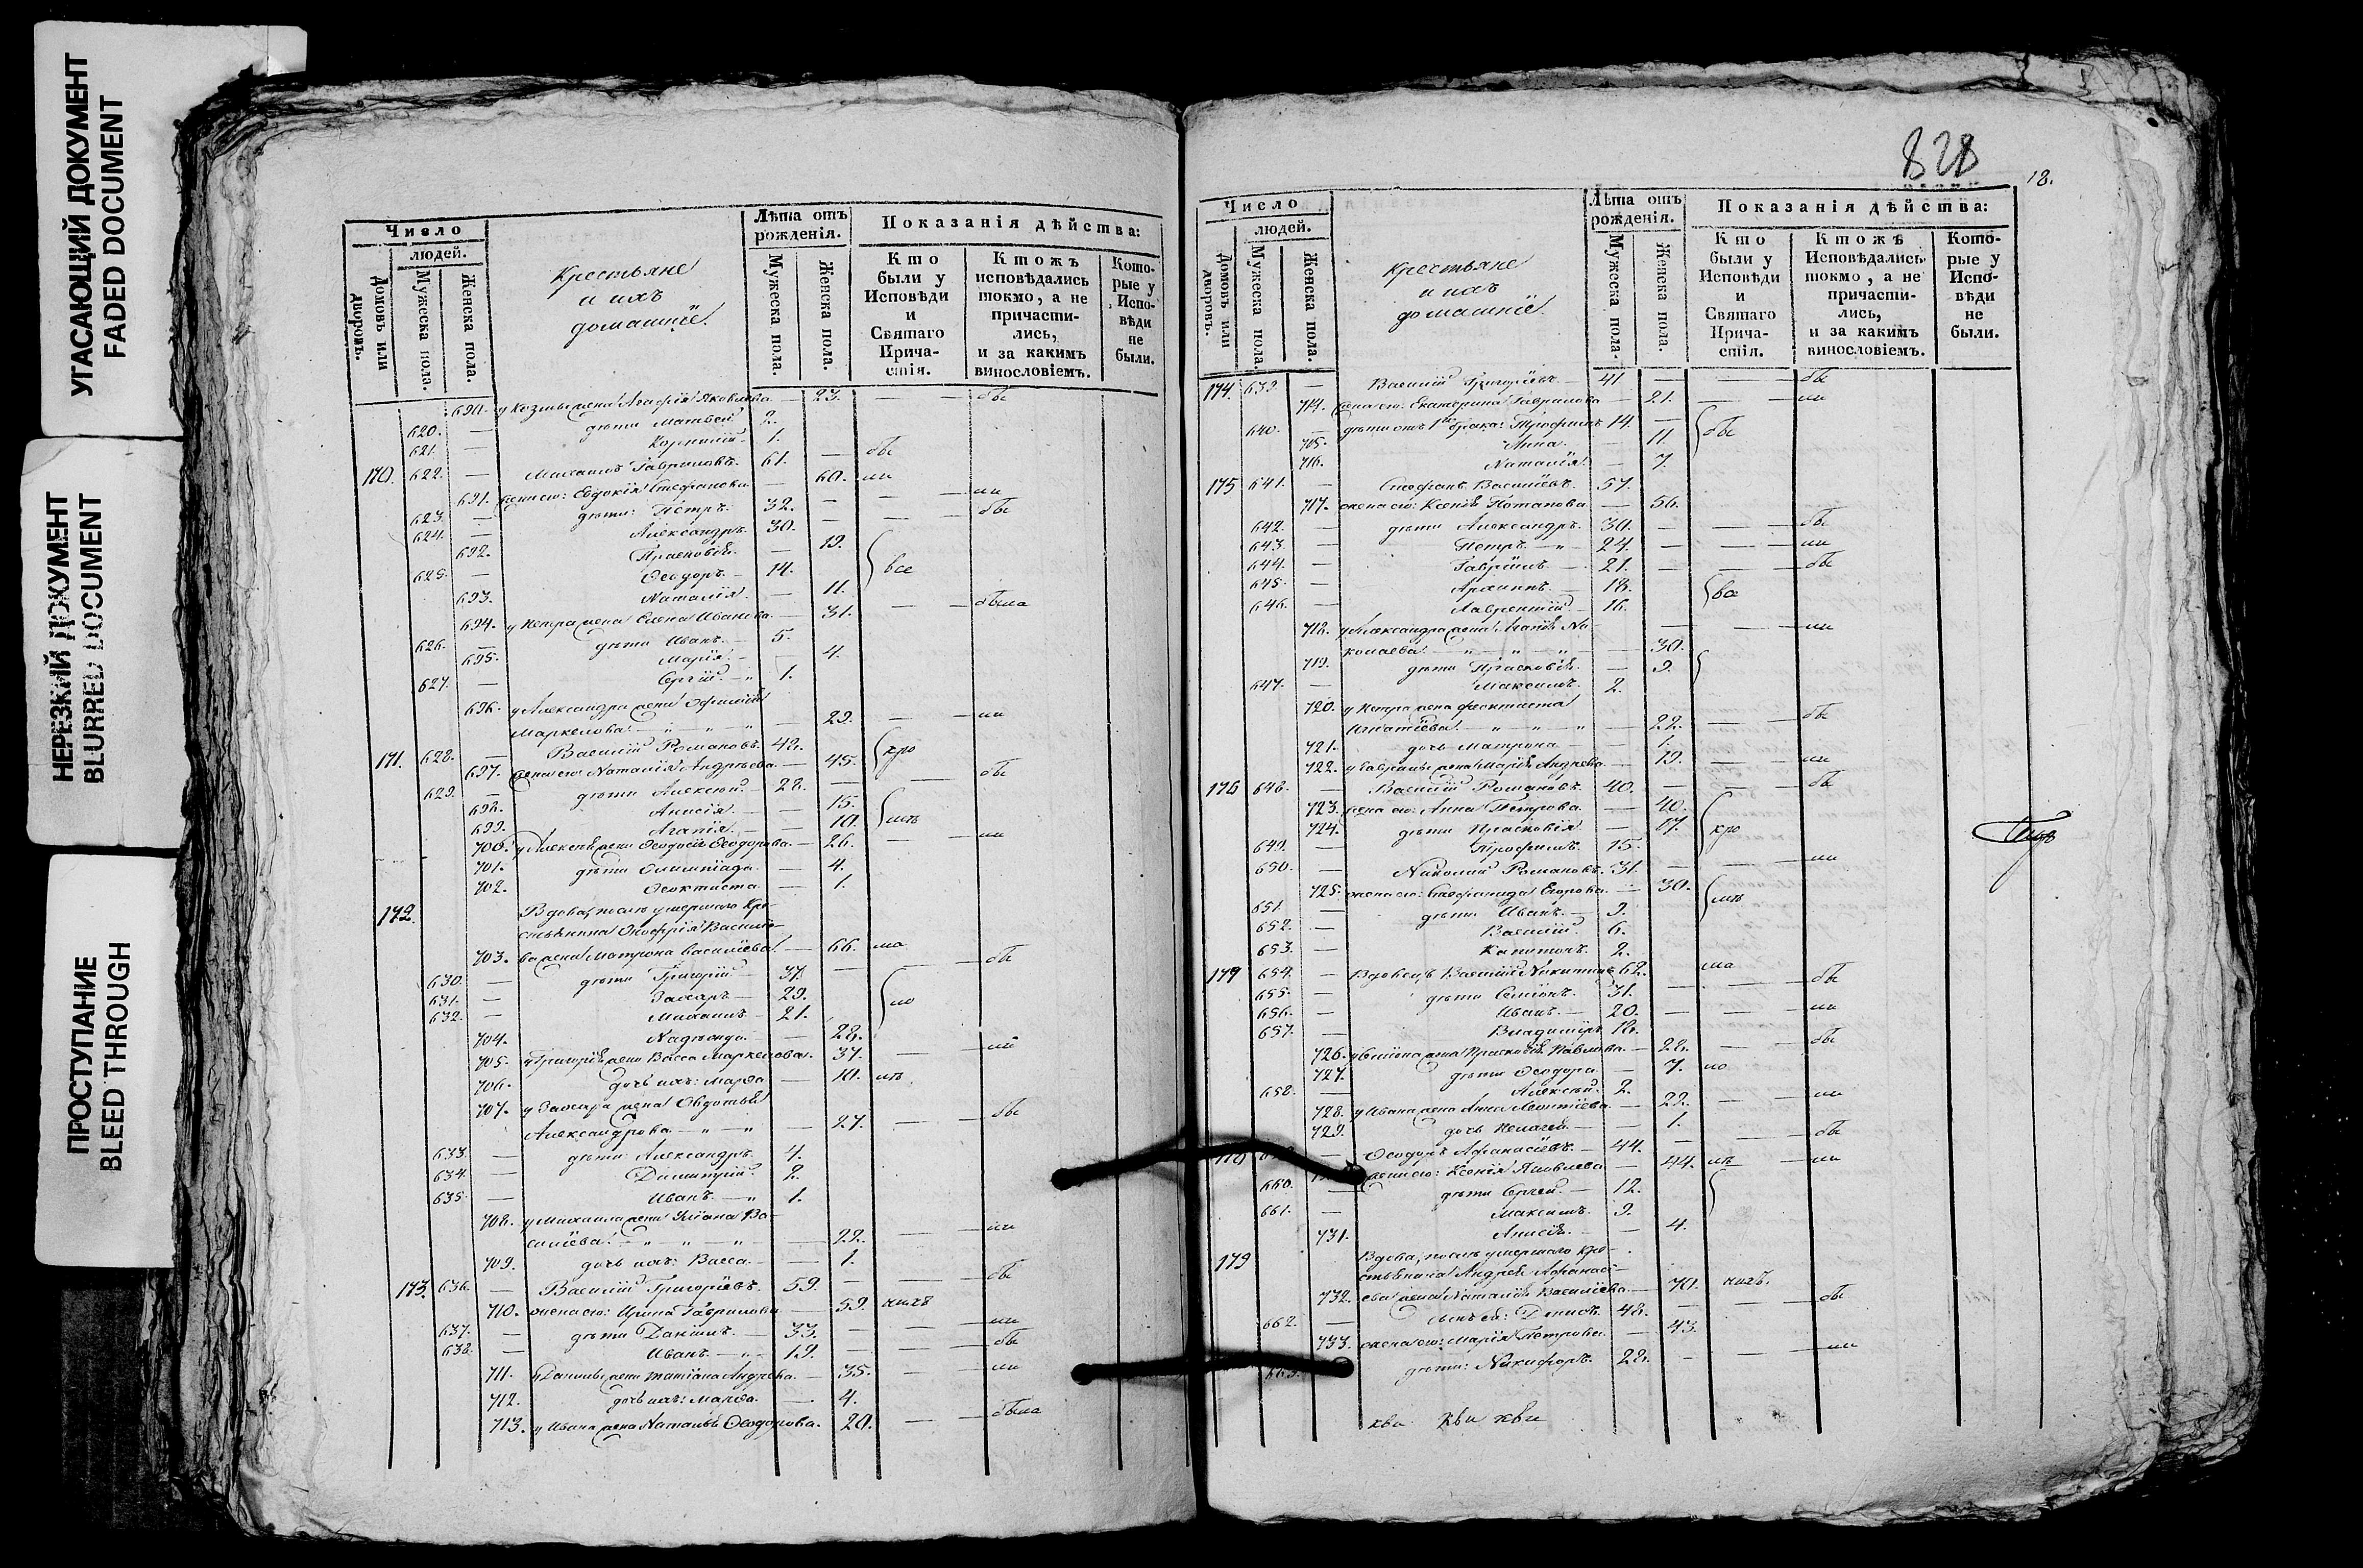 УГАСАЮЩИЙ ДОКУМЕНТ
FADED DOCUMENT
НЕРЕЗКИЙ ДОКУМЕНТ
BLURRED DOCUMENT
ПРОСТУПАНИЕ
BLEED THROUGH
Число
людей.
Домовъ или дворовъ.
Мужеска пола.
Женска пола.
Крестьяне
и ихъ
домашніе.
Лѣта отъ рожденія.
Мужеска пола.
Женска пола.
Показанія дѣйства:
Кто были у Исповѣди и Святаго Прича-стія.
Ктожъ исповѣдались токмо, а не причасти-лись, и за какимъ винословіемъ.
Кото-рые у Испо-вѣди не были.
690. у Козмы жена Агафія Яковлева — 23. — — бы
620. — дѣти Матвей 2.
621. — Корнилій 1.
170. 622. — Михаилъ Гавриловъ. 61. — бы
691. жена его: Евдокія Стефанова — 60. ли
623. — дѣти: Петръ. 32. — — ли
624. — Александръ. 30. — — бы
692. Прасковія. — 19.
625. — Ѳеодоръ. — 14. все
693. Наталія. — 11.
694. у Петра жена Елена Иванова — 31. — — была
626. — дѣти Иванъ. — 5.
695. Марія. — 4.
627. — Сергій. — 1.
696. у Александра жена Офимія
Маркелова — 29. — — ли
171. 628. — Василій Романовъ. 48.
697. жена его: Наталія Андреева — 45. кро
629. — дѣти Алексѣй. — 28. — — бы
698. Анисія. — 15.
699. Агапія. — 10. мѣ
700. у Алексѣя жена Ѳеодосія Ѳеодорова — 26. — — ли
701. дѣти Олимпіада. — 4.
702. Ѳеоктиста — 1.
172. Вдова, послѣ умершаго Кре-
стьянина Онофрія Василье-
703. ва жена Матрона Васильева — 66. ма
630. — дѣти Григорій 37. — — бы
631. — Захаръ — 29. ло
632. — Михаилъ — 21.
704. Надежда — 28.
705. у Григорія жена Васса Маркелова. 37. — — ли
706. дочь ихъ: Марѳа — 10. лѣ
707. у Захара жена Овдотья
Александрова — 27. — — бы
633. — дѣти Александръ. 4.
634. — Димитрій 2.
635. — Иванъ. — 1.
708. у Михаила жена Уліана Ва-
силіева — 22. — — ли
709. дочь ихъ: Васса. — 1.
173. 636. — Василій Григорьевъ. 59. — — бы
710. жена его: Ирина Гаврилова — 59. нихъ
637. — дѣти Даніилъ. — 33. — — ли
638. — Иванъ. — 19. — — бы
711. у Даніила жена Татіана Андреева. — 35. — — ли
712. дочь ихъ: Марѳа. — 4.
713. у Ивана жена Наталія Ѳеодорова. 20. — — была
828
18.
Число
людей.
Домовъ или дворовъ.
Мужеска пола.
Женска пола.
Крестьяне
и ихъ
домашніе.
Лѣта отъ рожденія.
Мужеска пола.
Женска пола.
Показанія дѣйства:
Кто были у Исповѣди и Святаго Прича-стія.
Ктожъ Исповѣдались токмо, а не причасти-лись, и за какимъ винословіемъ.
Кото-рые у Испо-вѣди не были.
174. 639. — Василій Григорьевъ. — 41 — — бы
714. жена его: Екатерина Гаврилова — 21. — — ли
640. — дѣти отъ 1го брака: Трофимъ 14. — бы
715. Анна. — 11.
716. Наталія. — 7.
175 641. — Стефанъ Васильевъ. 57.
717. жена его: Ксенія Потапова — 56.
642. — дѣти Александръ. 30. — — бы
643. — Петръ. — 24. — — ли
644. — Гавріилъ. — 21. — — бы
645. — Архиппъ. — 18. все
646. — Лаврентій. — 16.
718. у Александра жена Агапія Ни- — — ли
колаева — 30.
719. дѣти Прасковія. — 9.
647. — Максимъ. 2.
720. у Петра жена Феоктиста
Игнатіева — 22. — — бы
721. дочь Матрона — 1.
722. у Гавріила жена Марія Андреева. — 19. — — ли
176 648. — Василій Романовъ. 40. — — бы
723. жена его: Анна Петрова. — 40.
724. дѣти Прасковія. — 17. кро
649. — Трофимъ. 15.
650. — Николай Романовъ. 31. — — ли
725. жена его: Стефанида Егорова. — 30. мѣ
651. — дѣти Иванъ. — 9.
652. — Василій. 6.
653. — Капитонъ. 2.
177 654. — Вдовецъ Василій Никитинъ 62. ма
655. — дѣти Семіонъ. 31. — — бы
656. — Иванъ. — 20. — — ли
657. — Владимиръ 18.
726. у Семіона жена Прасковія Павлова. — 28. — — бы
727. дѣти Ѳеодора — 7. ло
658. — Алексѣй. 2.
728. у Ивана жена Анна Леонтіева. — 22. — — ли
729. дочь Пелагея. — 1.
Ѳеодоръ Афанасіевъ. — 44. — — бы
жена его: Ксенія Яковлева — 44. лѣ — ли
660. дѣти Сергей. — 12.
661. — Максимъ. 9.
731. Анисія. — 4.
179 Вдова, послѣ умершаго Кре-
стьянина Андрея Афанась-
732. ева жена Наталія Василіева — 70. нихъ.
662. — сынъ ея: Денисъ. 48. — — бы
733. жена его: Марія Петрова. — 43.
663. дѣти: Никифоръ. 28. — — ли